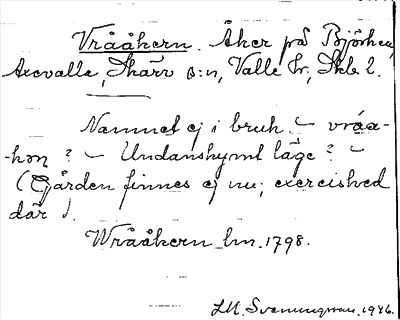 Vrååkern. Åker på Björken,
Axevalla, Skärv s:n, Valle hr, Skb. l.
Namnet ej i bruk. – vråa-
-kən ? – Undanskymt läge ? –
(Gården finnes ej nu; exercished
där).
Wrååkern lm. 1798.
I.M. Svenungsson. 1926.